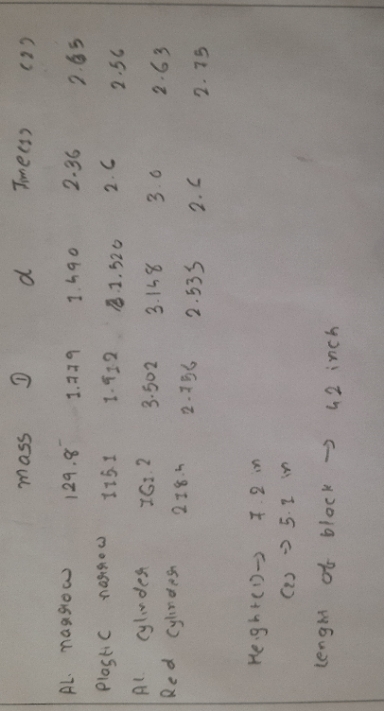 mass D d Time(1) (2)
AL narrow 129.8 1.779 1.490 2.36 2.65
Plastic narrow 115.1 1.912 1.520 2.6 2.56
AL cylinder 761.2 3.502 3.148 3.0 2.63
Red cylinder 218.4 2.756 2.535 2.6 2.75
Height(1) → 7.2 in
(2) → 5.1 in
Lenght of block → 42 inch